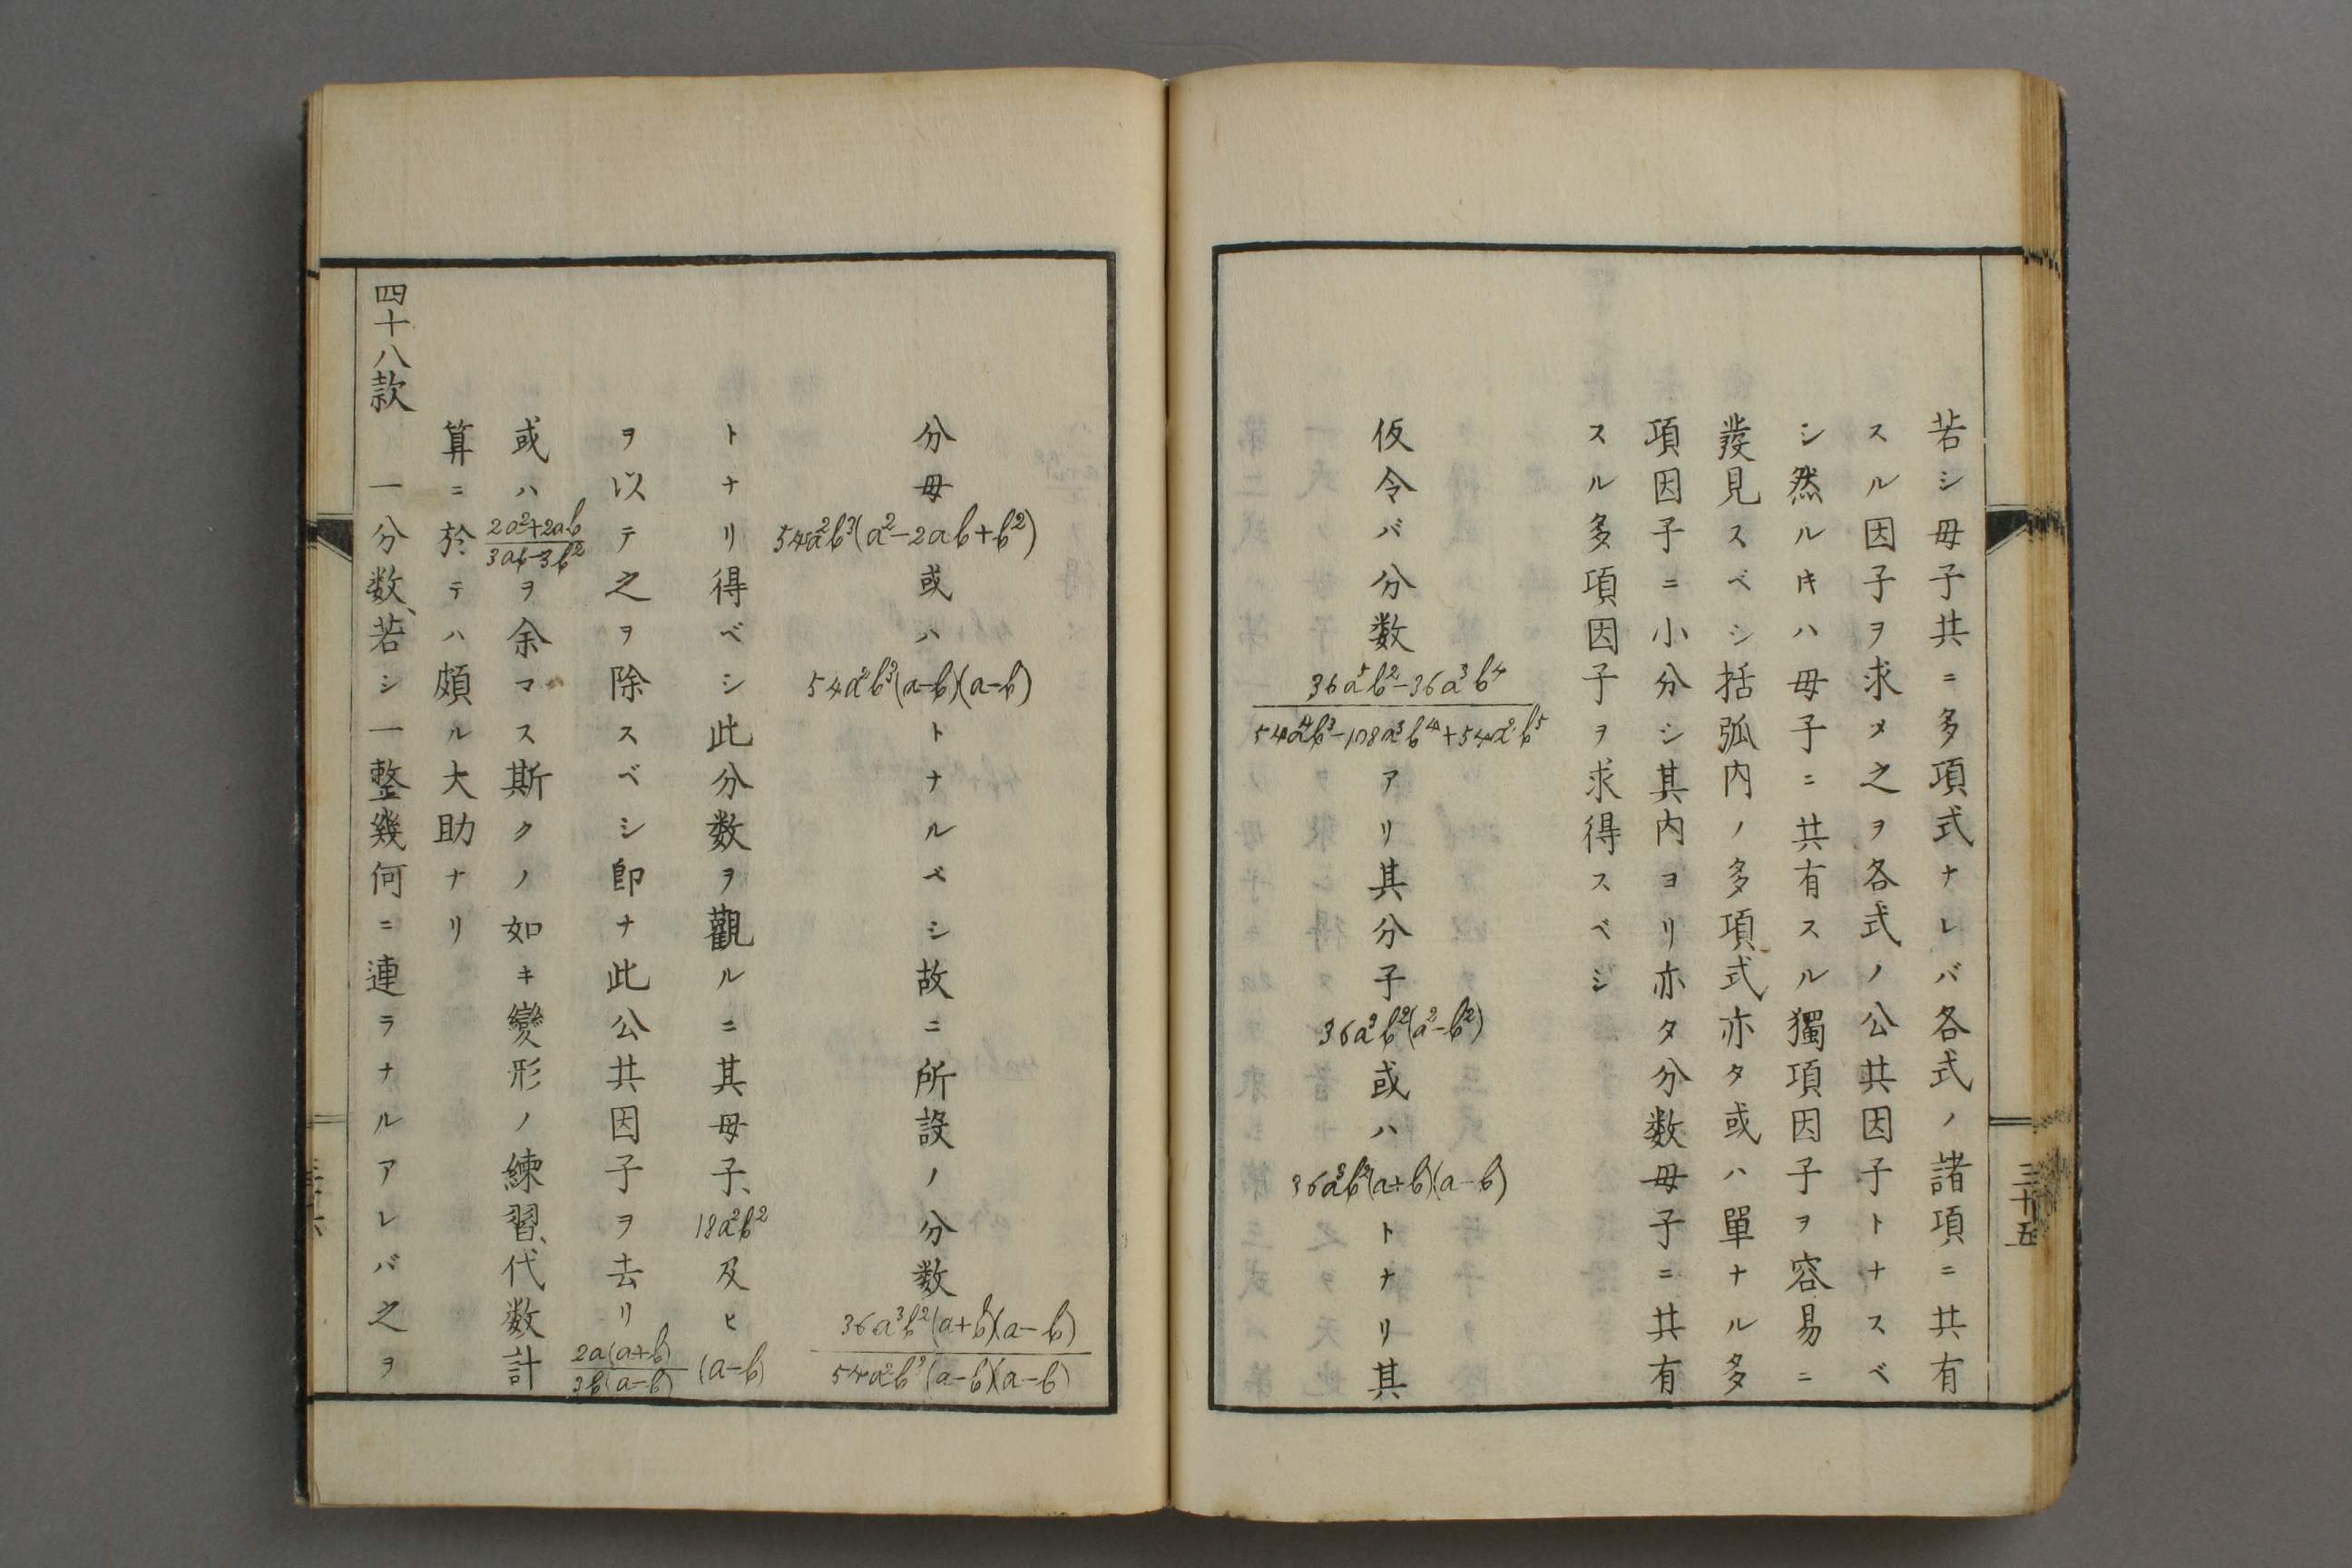 若シ母子共ニ多項式ナレバ各式ノ諸項ニ共有
スル因子ヲ求メ之ヲ各式ノ公共因子トナスベ
シ然ル𪜈ハ母子ニ共有スル獨項因子ヲ容易ニ
發見スベシ括弧内ノ多項式亦タ或ハ單ナル多
項因子ニ小分シ其内ヨリ亦タ分数母子ニ共有
スル多項因子ヲ求得スベシ
仮令バ分数 \frac{36a^5b^2-36a^3b^4}{54a^4b^3-108a^3b^4+54a^2b^5} アリ其分子 36a^3b^2(a^2-b^2) 或ハ 36a^3b^2(a+b)(a-b) トナリ其
三十五
分母 54a^2b^3(a^2-2ab+b^2) 或ハ 54a^2b^3(a-b)(a-b) トナルベシ故ニ所設ノ分数 \frac{36a^3b^2(a+b)(a-b)}{54a^2b^3(a-b)(a-b)}
トナリ得ベシ此分数ヲ觀ルニ其母子、18a^2b^2 及ヒ (a-b)
ヲ以テ之ヲ除スベシ即ナ此公共因子ヲ去リ \frac{2a(a+b)}{3b(a-b)}
或ハ \frac{2a^2+2ab}{3ab-3b^2} ヲ余マス斯クノ如キ變形ノ練習、代数計
算ニ於テハ頗ル大助ナリ
四十八款 一分数、若シ一整幾何ニ連ラナルアレバ之ヲ